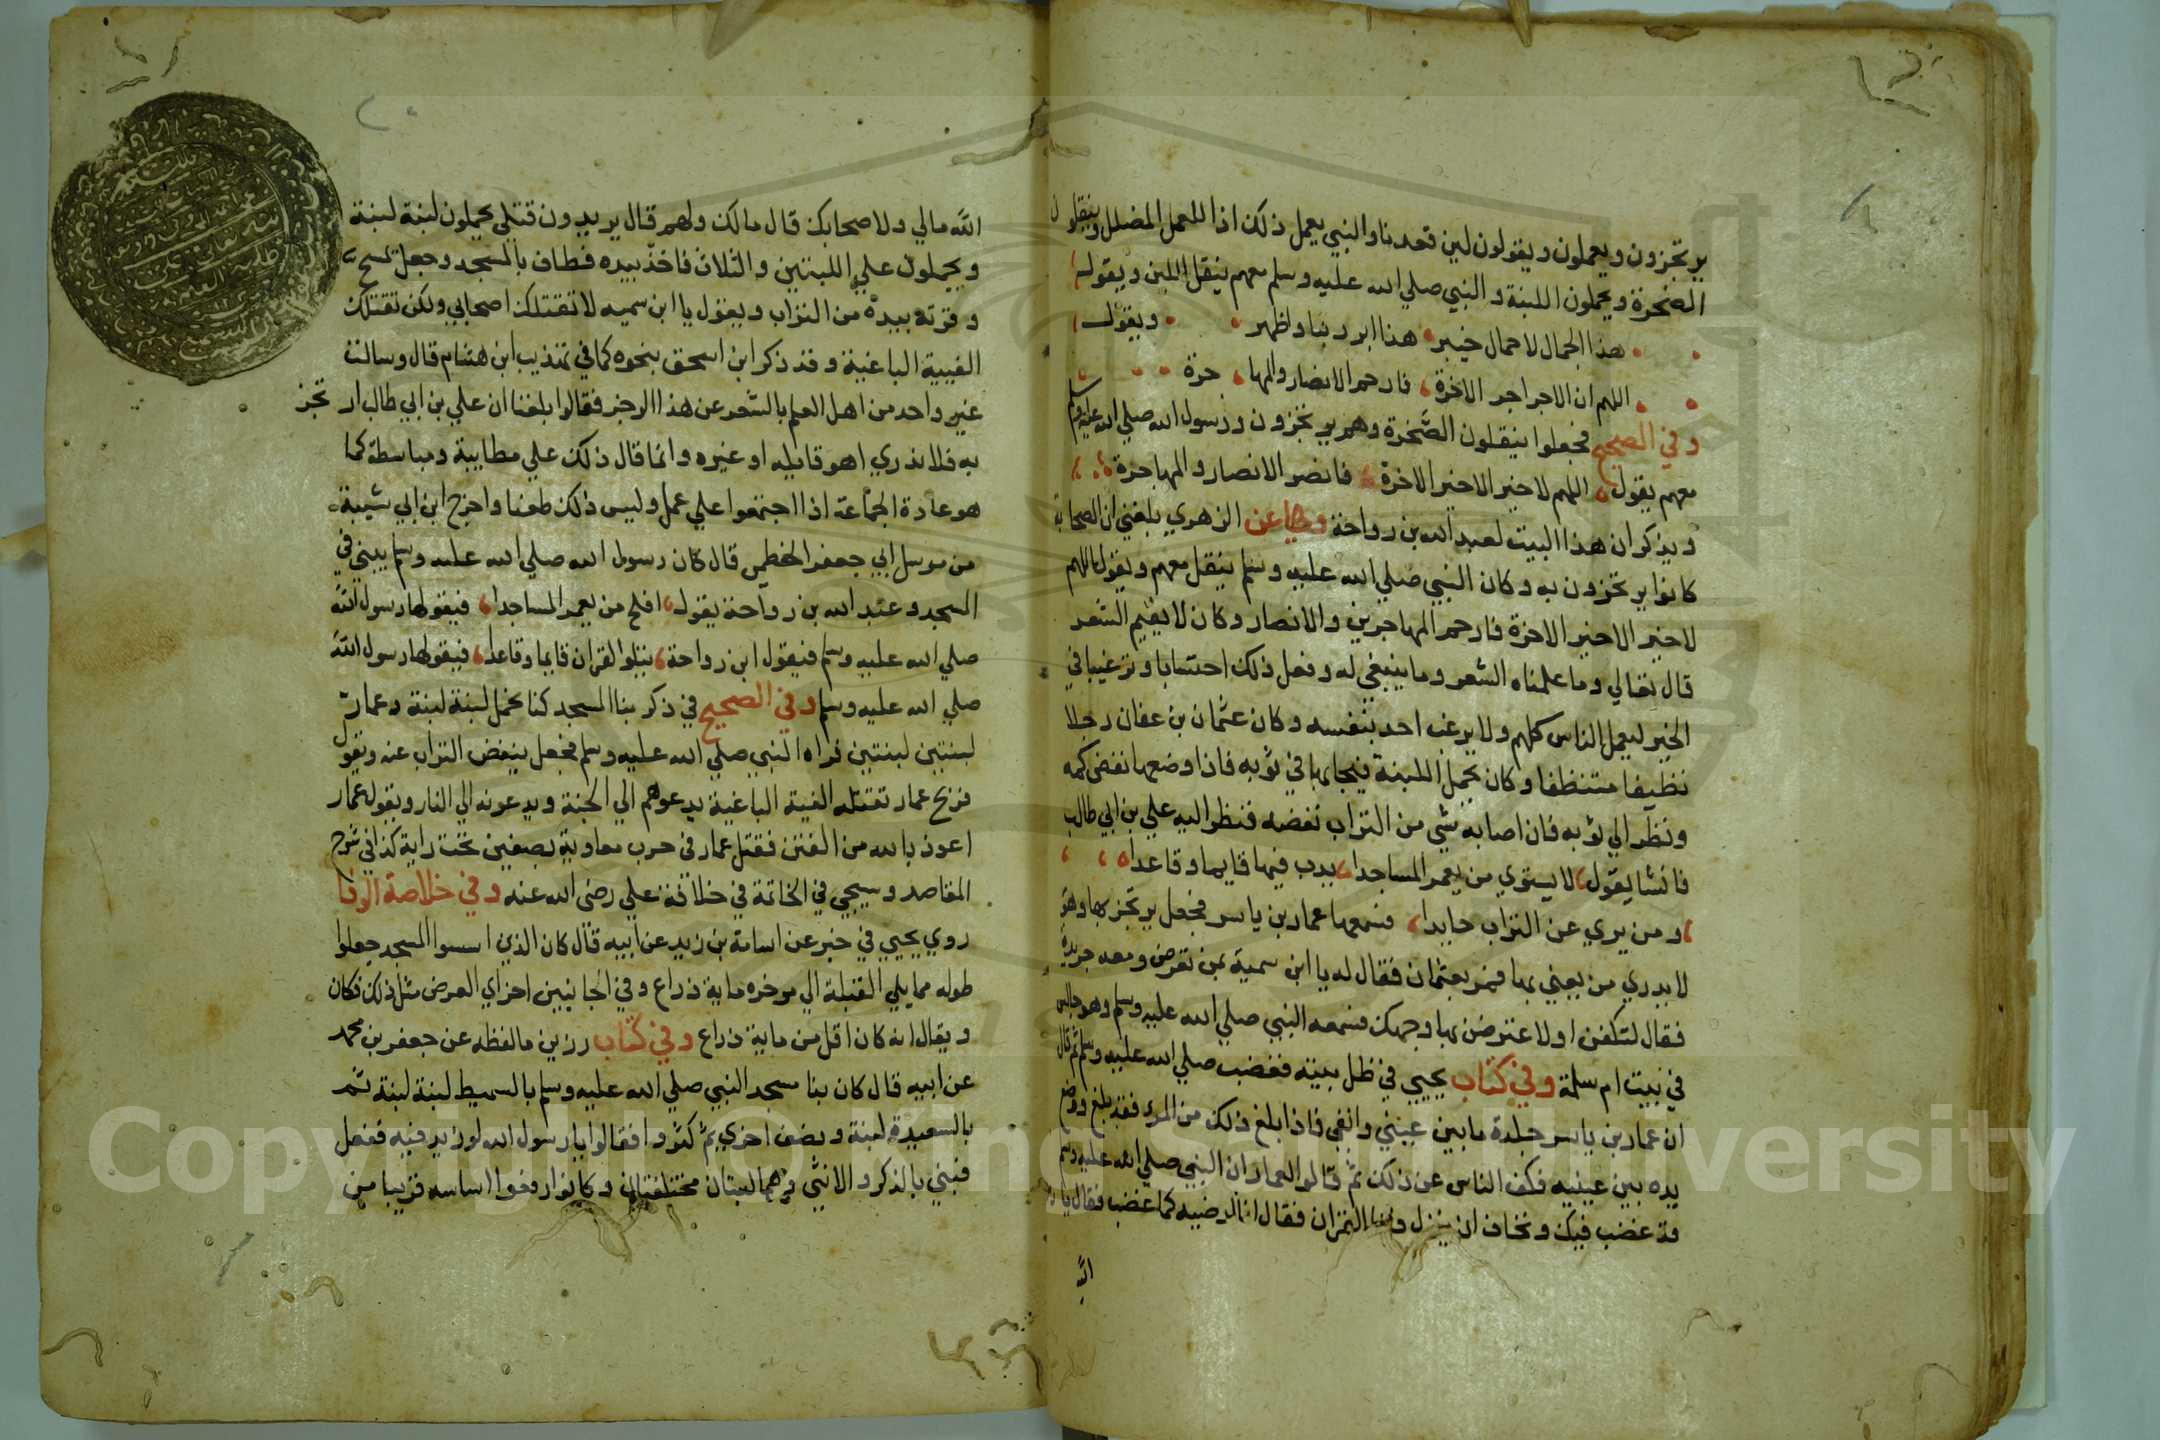 يرتجزون ويعملون ويقولون لين قعدنا والنبي يعمل ذلك اذا للعمل المضلل وينقلون
الصخرة ويحملون اللبنة والنبي صلي الله عليه وسلم معهم ينقل اللبن ويقول
هذا الجمال لا حمال خيبر هذا ابر ربنا واطهر ويقول
اللهم ان الاجر اجر الاخرة فارحم الانصار والمها جرة
وفي الصحيح فجعلوا ينقلون الصخرة وهم يرتجزون ورسول الله صلي الله عليه وسلم
معهم يقول اللهم لا خير الا خير الاخرة فانصر الانصار والمهاجرة
ويذكر ان هذا البيت لعبد الله بن رواحة وجا عن الزهري بلغني ان الصحابة
كانوا يرتجزون به وكان النبي صلي الله عليه وسلم ينقل معهم ويقول اللهم
لا خير الا خير الاخرة فارحم المهاجرين والانصار وكان لا يقيم الشعر
قال تعالي وما علمناه الشعر وما ينبغي له وفعل ذلك احتسابا وترغيبا في
الخير ليعمل الناس كلهم ولا يرغب احد بنفسه وكان عثمان بن عفان رجلا
نظيفا متنظفا وكان يحمل اللبنة فيجا بها في ثوبه فاذا وضعها نفض كمه
ونظر الي ثوبه فان اصابه شي من التراب نفضه فنظر اليه علي بن ابي طالب
فانشا يقول لا يستوي من يعمر المساجدا يدب فيها قايما وقاعدا
ومن يري عن التراب حايدا فسمعها عمار بن ياسر فجعل يرتجز بها وهو
لا يدري من يعني بها فمر بعثمان فقال له يا ابن سمية بمن تعرض ومعه جريدة
فقال لتكفن او لاعترضن بها وجهك فسمعه النبي صلي الله عليه وسلم وهو جالس
في بيت ام سلمة وفي كتاب يحيي في ظل بيته فغضب صلي الله عليه وسلم ثم قال
ان عمار بن ياسر جلدة ما بين عيني وانفي فاذا بلغ ذلك من المرء فقد بلغ ووضع
يده بين عينيه فكف الناس عن ذلك ثم قالوا لعمار ان النبي صلي الله عليه وسلم
قد غضب فيك ونخاف ان ينزل فينا القران فقال انا ارضيه كما غضب فقال يا رسول
الله
الله مالي ولاصحابك قال مالك ولهم قال يريدون قتلي يحملون لبنة لبنة
ويحملون علي اللبنتين والثلاث فاخذ بيده فطاف بالمسجد وجعل يمسح
وفرته بيده من التراب ويقول يا ابن سميه لا تقتلك اصحابي ولكن تقتلك
الفيية الباغية وقد ذكر ابن اسحق بنحوه كما في تهذيب ابن هشام قال وسالت
غير واحد من اهل العلم بالشعر عن هذا الرجز فقالوا بلغنا ان علي بن ابي طالب ارتجز
به فلا ندري اهو قايله او غيره وانما قال ذلك علي مطايبة ومباسطة كما
هو عادة الجماعة اذا اجتمعوا علي عمل وليس ذلك طعنا واخرج ابن ابي شيبة
من مرسل ابي جعفر الخطمي قال كان رسول الله صلي الله عليه وسلم يبني في
المسجد وعبد الله بن رواحة يقول افلح من يعمر المساجدا فيقولها رسول الله
صلي الله عليه وسلم فيقول ابن رواحة يتلو القران قايما وقاعدا فيقولها رسول الله
صلي الله عليه وسلم وفي الصحيح في ذكر بنا المسجد كنا نحمل لبنة لبنة وعمار
لبنتين لبنتين فراه النبي صلي الله عليه وسلم فجعل ينفض التراب عنه ويقول
فويح عمار تقتله الفية الباغية يدعوهم الي الجنة ويدعونه الي النار ويقول عمار
اعوذ بالله من الفتن فقتل عمار في حرب معاوية بصفين تحت راية كذا في شرح
المقاصد وسيجي في الخاتمة في خلافة علي رضي الله عنه وفي خلاصة الوفا
روي يحيي في خبر عن اسامة بن زيد عن ابيه قال كان الذين اسسوا المسجد جعلوا
طوله مما يلي القبلة الي موخره ماية ذراع وفي الجانبين اخراي العرض مثل ذلك فكان
ويقال انه كان اقل من ماية ذراع وفي كتاب رزين ما لفظه عن جعفر بن محمد
عن ابيه قال كان بنا مسجد النبي صلي الله عليه وسلم بالسميط لبنة لبنة ثم
بالسعيدة لبنة ونصف اخري ثم كثروا فقالوا يا رسول الله لو زيد فيه ففعل
فبني بالذكر والانثي وهما لبنتان مختلفتان وكانوا رفعوا اساسه قريبا من
Copyright © King Saud University